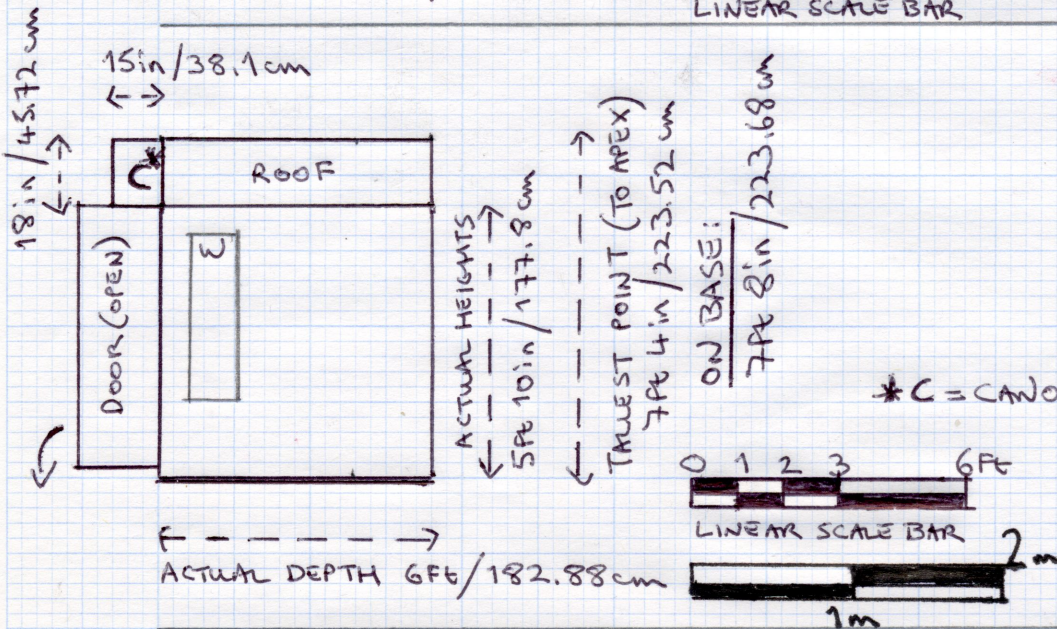 LINEAR SCALE BAR
15in/38.1cm
18in/45.72cm
C*
ROOF
DOOR (OPEN)
W
ACTUAL HEIGHTS
5Ft 10in/177.8cm
TALLEST POINT (TO APEX)
7Ft 4in/223.52cm
ON BASE:
7Ft 8in/223.68cm
* C = CANO
0 1 2 3 6Ft
LINEAR SCALE BAR
2m
1m
ACTUAL DEPTH 6Ft/182.88cm